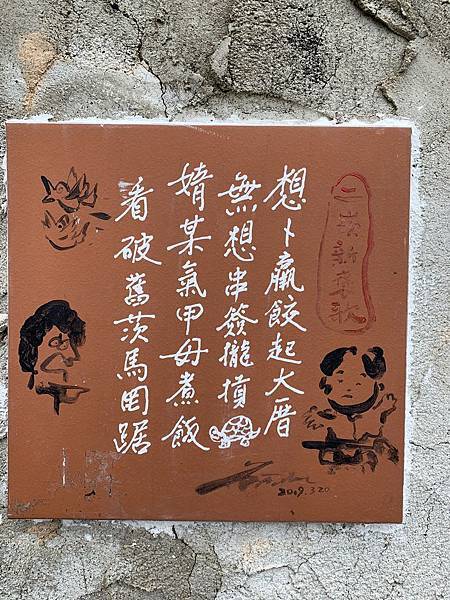 二崁新褒歌
想卜贏餃起大厝
無想串簽攏摃
婧某氣甲毋煮飯
看破舊茨馬罔踞
2019.3.20